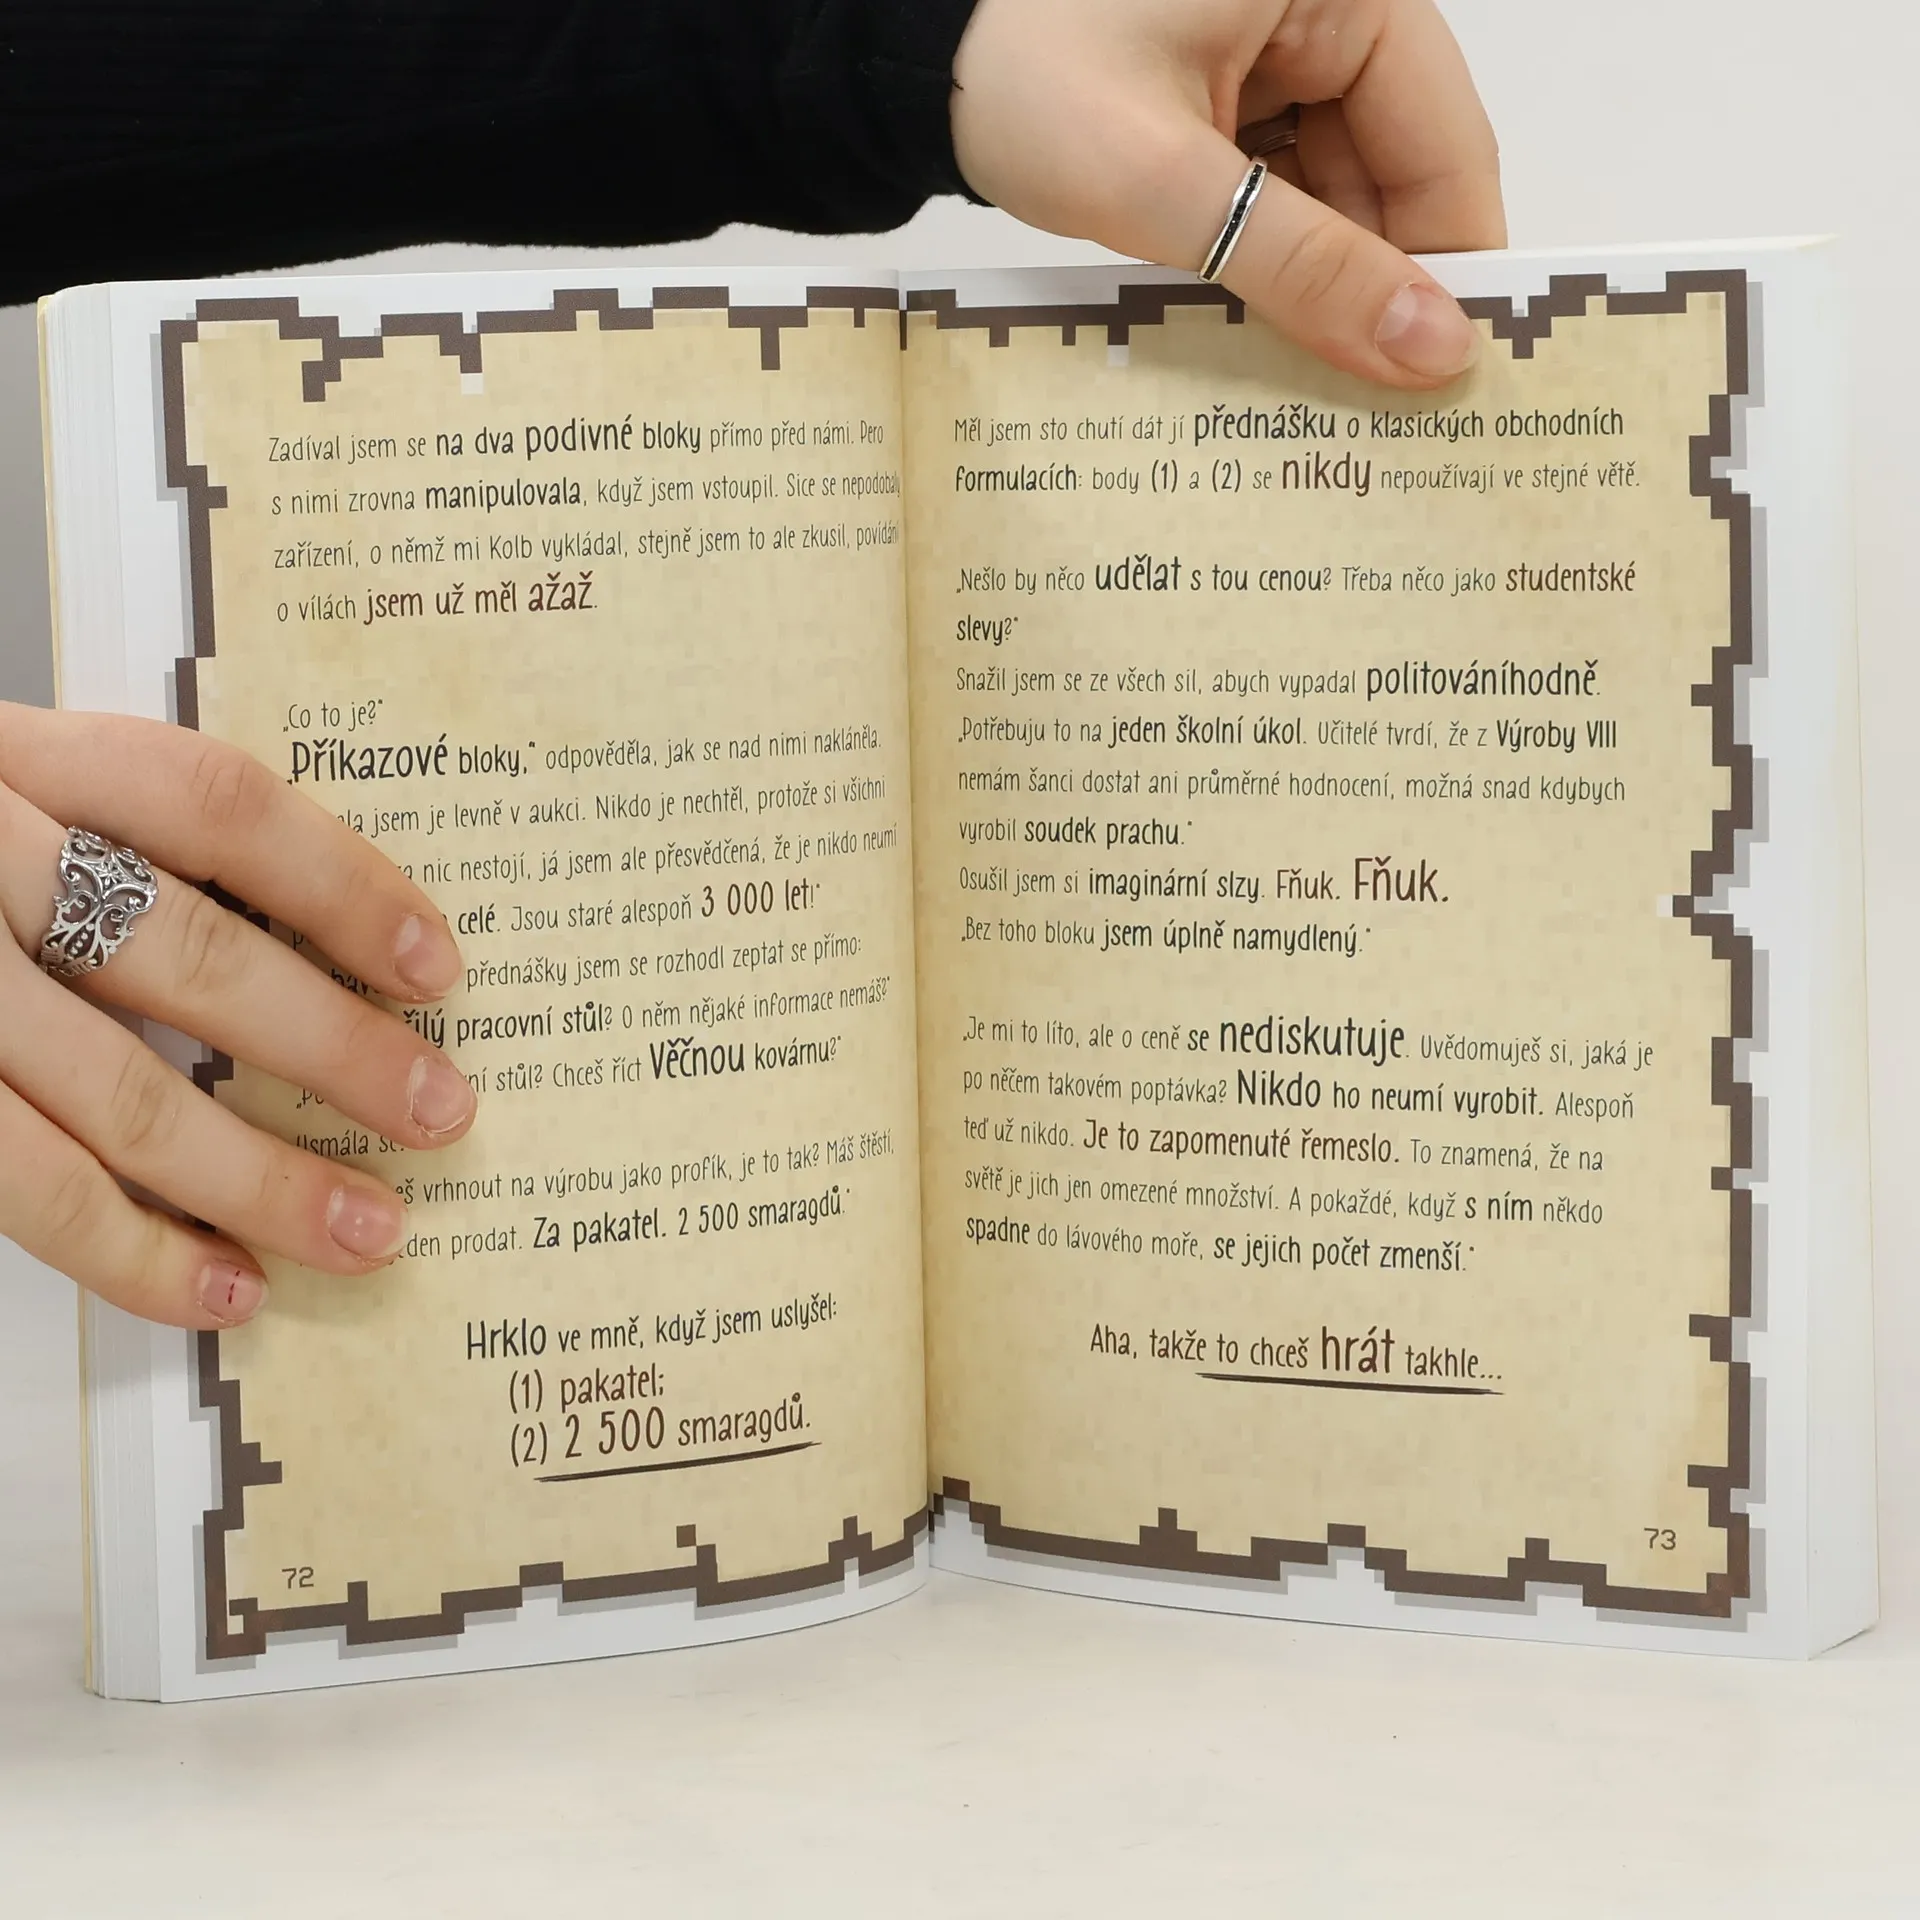 Zadíval jsem se na dva podivné bloky přímo před námi. Pero
s nimi zrovna manipulovala, když jsem vstoupil. Sice se nepodobaly
zařízení, o němž mi Kolb vykládal, stejně jsem to ale zkusil, povídání
o vílách jsem už měl ažaž.
„Co to je?“
„Příkazové bloky,“ odpověděla, jak se nad nimi nakláněla.
jsem je levně v aukci. Nikdo je nechtěl, protože si všichni
nic nestojí, já jsem ale přesvědčená, že je nikdo neumí
celé. Jsou staré alespoň 3 000 let!“
přednášky jsem se rozhodl zeptat se přímo:
pracovní stůl? O něm nějaké informace nemáš?“
stůl? Chceš říct Věčnou kovárnu?“
Usmála
vrhnout na výrobu jako profík, je to tak? Máš štěstí,
prodat. Za pakatel. 2 500 smaragdů.“
Hrklo ve mně, když jsem uslyšel:
(1) pakatel;
(2) 2 500 smaragdů.
72
Měl jsem sto chutí dát jí přednášku o klasických obchodních
formulacích: body (1) a (2) se nikdy nepoužívají ve stejné větě.
„Nešlo by něco udělat s tou cenou? Třeba něco jako studentské
slevy?“
Snažil jsem se ze všech sil, abych vypadal politováníhodně.
„Potřebuju to na jeden školní úkol. Učitelé tvrdí, že z Výroby VIII
nemám šanci dostat ani průměrné hodnocení, možná snad kdybych
vyrobil soudek prachu.“
Osušil jsem si imaginární slzy. Fňuk. Fňuk.
„Bez toho bloku jsem úplně namydlený.“
„Je mi to líto, ale o ceně se nediskutuje. Uvědomuješ si, jaká je
po něčem takovém poptávka? Nikdo ho neumí vyrobit. Alespoň
teď už nikdo. Je to zapomenuté řemeslo. To znamená, že na
světě je jich jen omezené množství. A pokaždé, když s ním někdo
spadne do lávového moře, se jejich počet zmenší.“
Aha, takže to chceš hrát takhle...
73